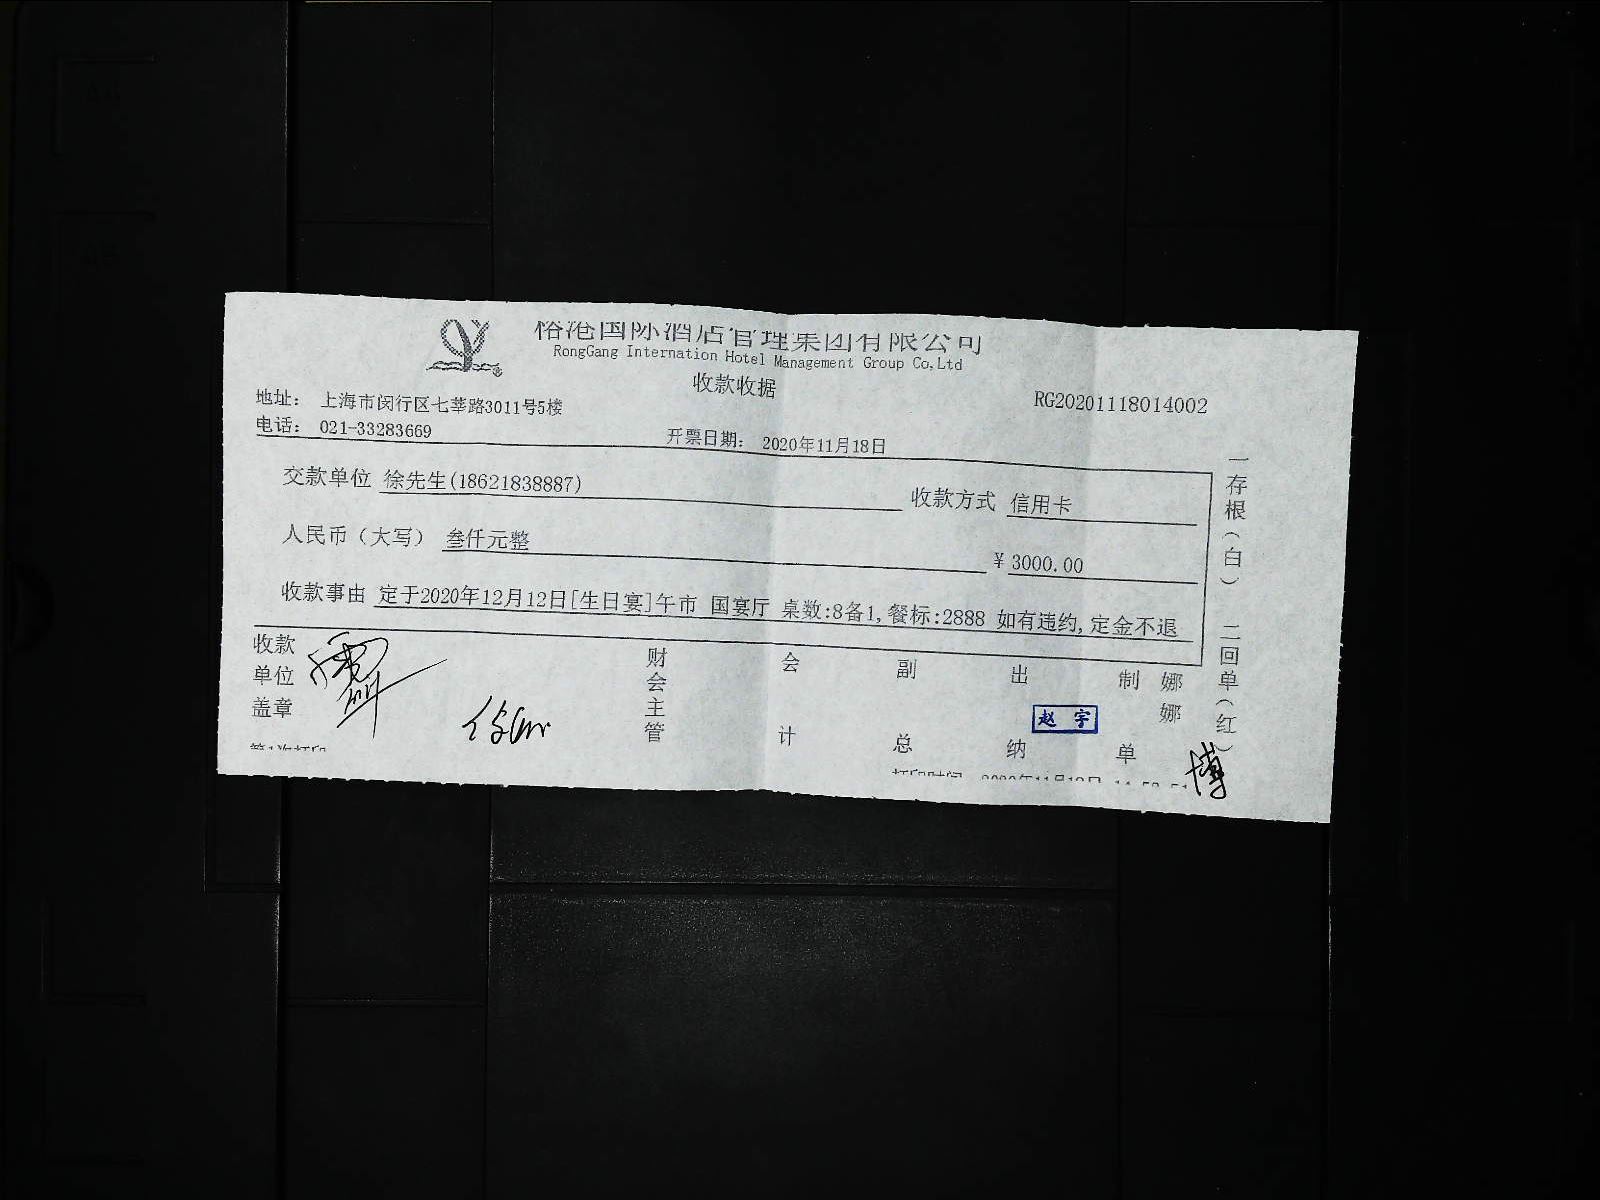 榕港国际酒店管理集团有限公司
RongGang Internation Hotel Management Group Co,Ltd
收款收据
RG20201118014002
地址： 上海市闵行区七莘路3011号5楼
电话： 021-33283669
开票日期： 2020年11月18日
交款单位 徐先生(18621838887)
收款方式 信用卡
人民币（大写） 叁仟元整
¥ 3000.00
收款事由 定于2020年12月12日[生日宴]午市 国宴厅 桌数:8备1,餐标:2888 如有违约,定金不退
收款单位盖章
财会主管
会计
副总
出纳
赵宇
制单
娜娜
博
一存根（白） 二回单（红）
第1次打印
打印时间